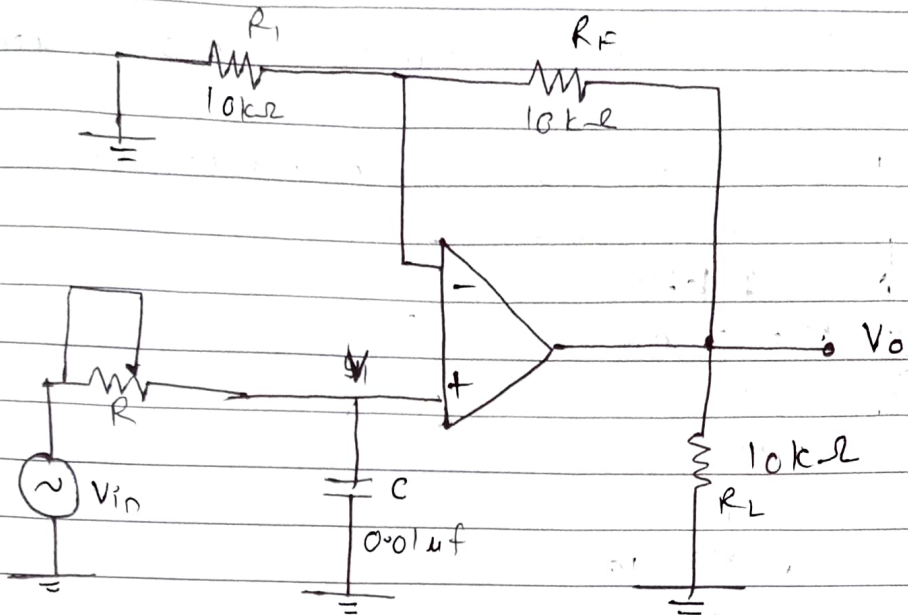 R1
RF
10kΩ
10kΩ
−
+
Vo
R
Vin
C
0.01 µf
10kΩ
RL